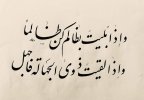 واذا بليت بظالم كن ظالما
واذا لقيت ذوى الجهالة فاجهل